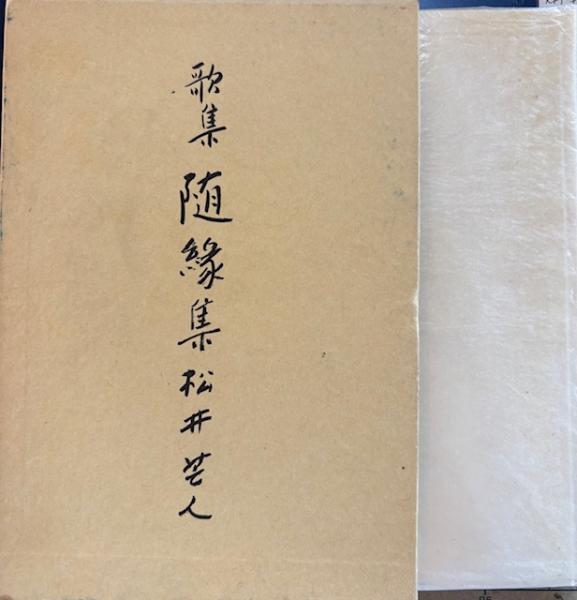 歌集 随縁集 松井芒人